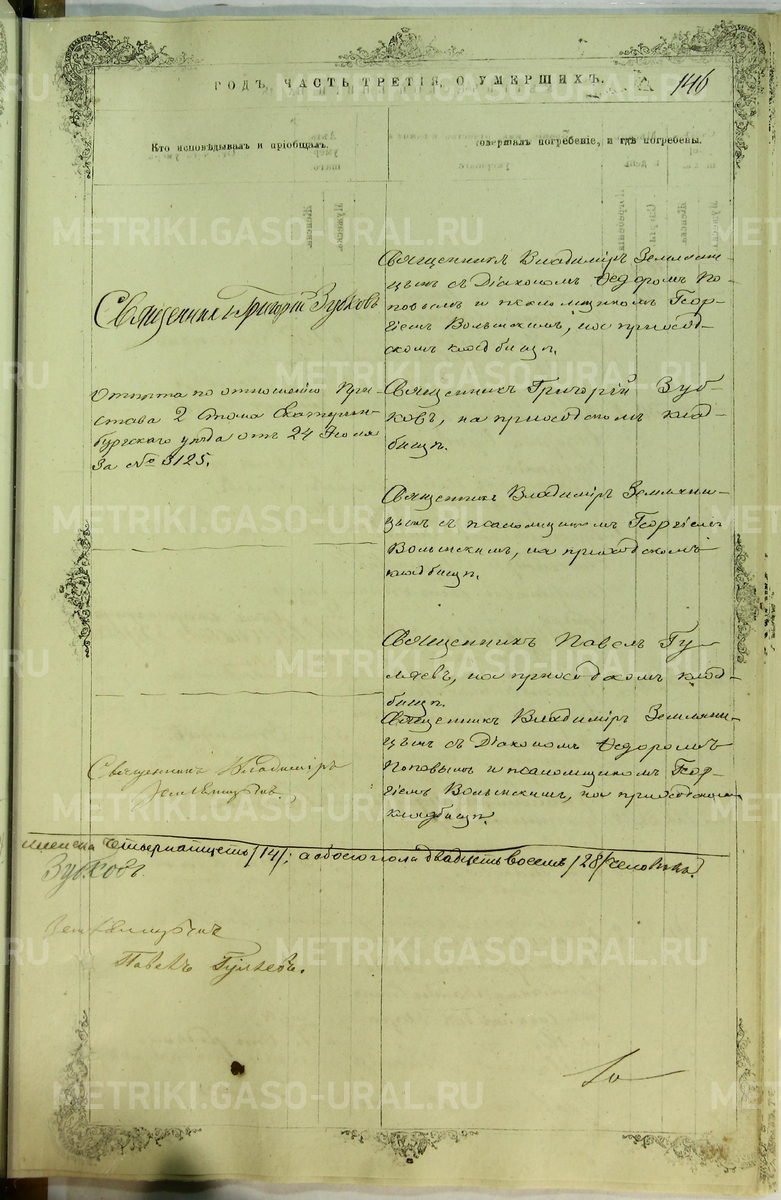 ГОДЪ, ЧАСТЬ ТРЕТІЯ, О УМЕРШИХЪ.
146
Кто исповѣдывалъ и пріобщалъ.
совершалъ погребеніе, и гдѣ погребены.
Священникъ Григорій Зубковъ
Священникъ Владиміръ Земляни-
цынъ съ Діакономъ Ѳедоромъ По-
повымъ и псаломщикомъ Геор-
гіемъ Волынскимъ, на приход-
скомъ кладбищѣ.
Отпѣта по отношенію При-
става 2 Стана Екатерин-
бургскаго уѣзда отъ 24 Іюля
За № 3125.
Священникъ Григорій Зуб-
ковъ, на приходскомъ клад-
бищѣ.
Священникъ Владиміръ Земляни-
цынъ съ псаломщикомъ Георгіемъ
Волынскимъ, на приходскомъ
кладбищѣ.
Священникъ Павелъ Гу-
ляевъ, на приходскомъ клад-
бищѣ.
Священникъ Владиміръ
Земляницынъ
Священникъ Владиміръ Земляни-
цынъ съ Діакономъ Ѳедоромъ
Поповымъ и псаломщикомъ Геор-
гіемъ Волынскимъ, на приходскомъ
кладбищѣ.
женска четырнатцеть /14/; а обоего пола двадцеть восемь /28/ человѣкъ.
Зубковъ.
Земляницынъ
Павелъ Гуляевъ.
METRIKI.GASO-URAL.RU